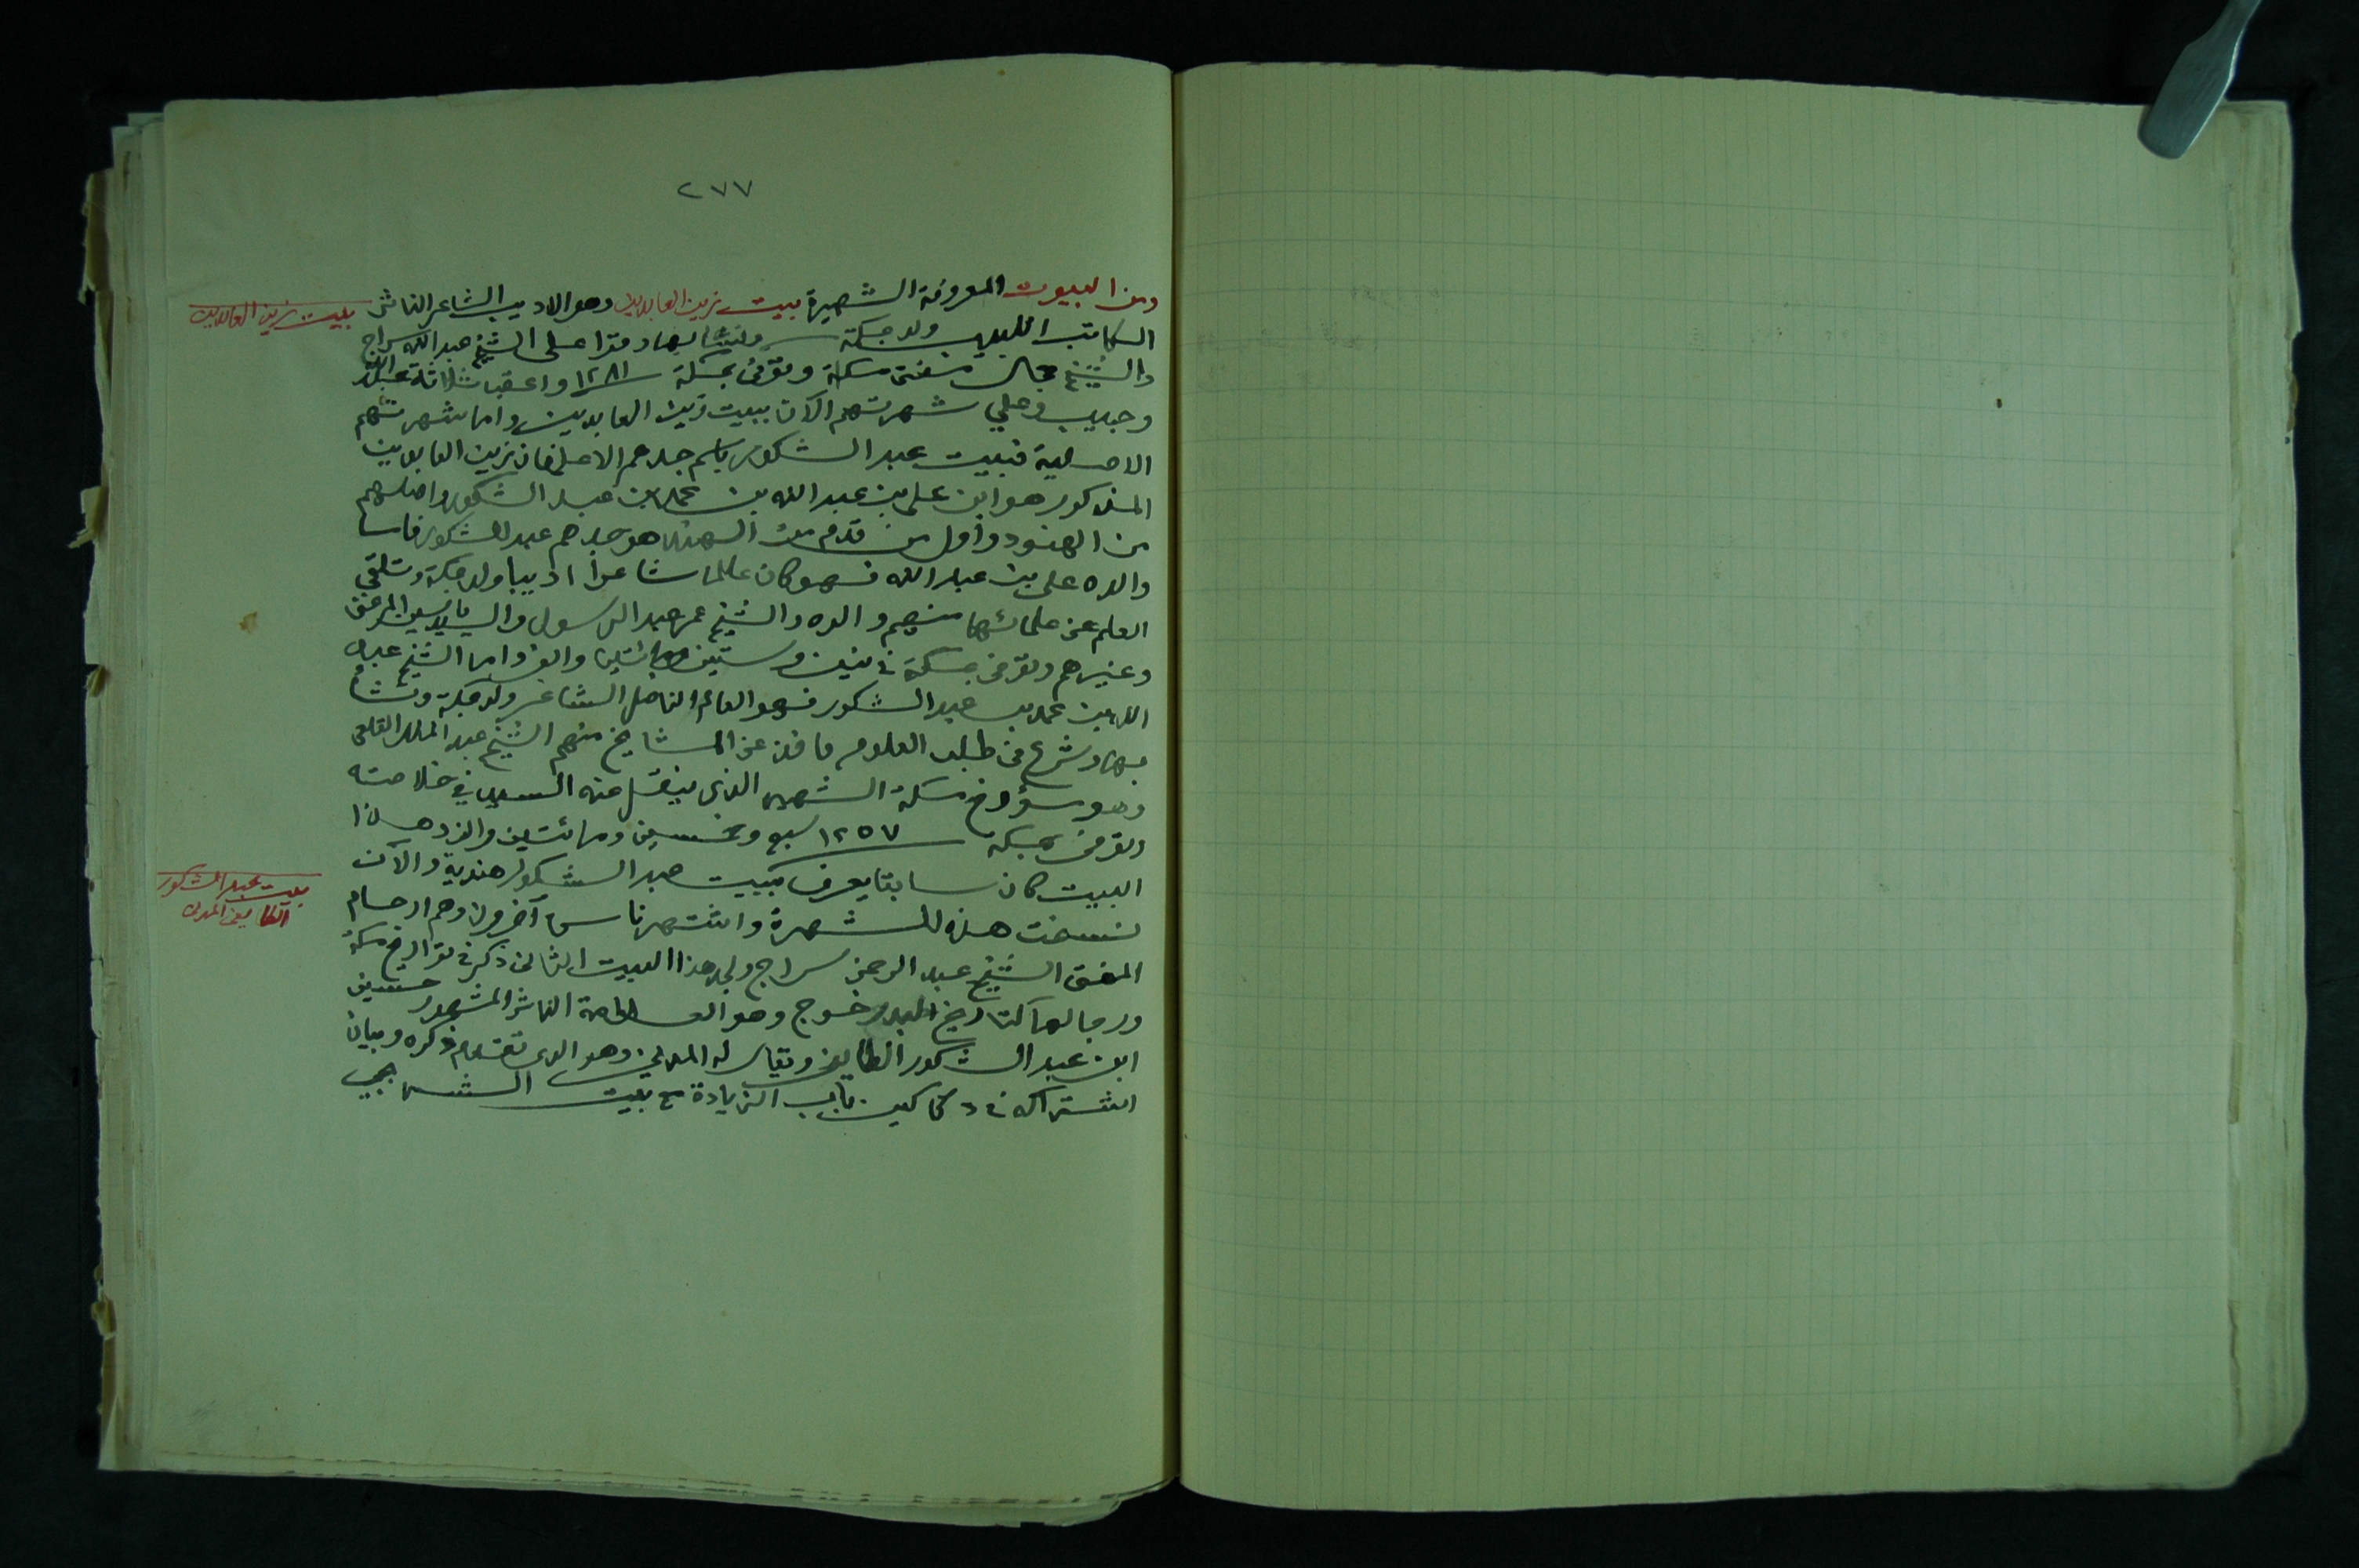 ٢٧٧
ومن البيوت المعروفة الشهيرة بيت زين العابدين وهو الاديب الشاعر الناثر
بيت زين العابدين
الكاتب اللبيب ولد بمكة ونشأ بها وقرا على الشيخ عبد الله سراج
والشيخ جمال مفتى مكة وتوفى بمكة ١٢٨١ واعقب ثلاثة عبد الله
وحبيب وعلي شهرتهم الآن ببيت زين العابدين واما شهرتهم
الاصلية فبيت عبد الشكور باسم جدهم الاصلى فان زين العابدين
المذكور هو ابن على بن عبد الله بن محمد بن عبد الشكور واصلهم
من الهنود واول من قدم من الهند هو جدهم عبد الشكور فاما
والده على بن عبد الله فهو كان عالما شاعرا اديبا ولد بمكة وتلقى
العلم عن علمائها منهم والده والشيخ عمر عبد الرسول والسيد يسين المرغنى
وغيرهم وتوفى بمكة في نيف وستين ومائتين والف واما الشيخ عبد
الله بن محمد بن عبد الشكور فهو العالم الفاضل الشاعر ولد بمكة ونشأ
بها وشرع فى طلب العلوم فاخذ عن المشايخ منهم الشيخ عبد الملك القلعى
وهو مؤرخ مكة الشهير الذى ينقل عنه السيد في خلاصته
وتوفى بمكة ١٢٥٧ سبع وخمسين ومائتين والف وهذا
البيت كان سابقا يعرف ببيت عبد الشكور هندية والآن
بيت عبد الشكور
الطايفى المدنى
نسخت هذه الشهرة واشتهر ناس آخرون وهم ارحام
المفتى الشيخ عبد الرحمن سراج ولجد هذا البيت الثانى ذكر في تواريخ مكة
ورجالها كتاريخ خوج وهو العلامة الناثر المشهور حسين
ابن عبد الشكور الطايفى ويقال له المدنى وهو الذى تقدم ذكره وبيان
اشتراكه في دكاكين باب الزيادة مع بيت